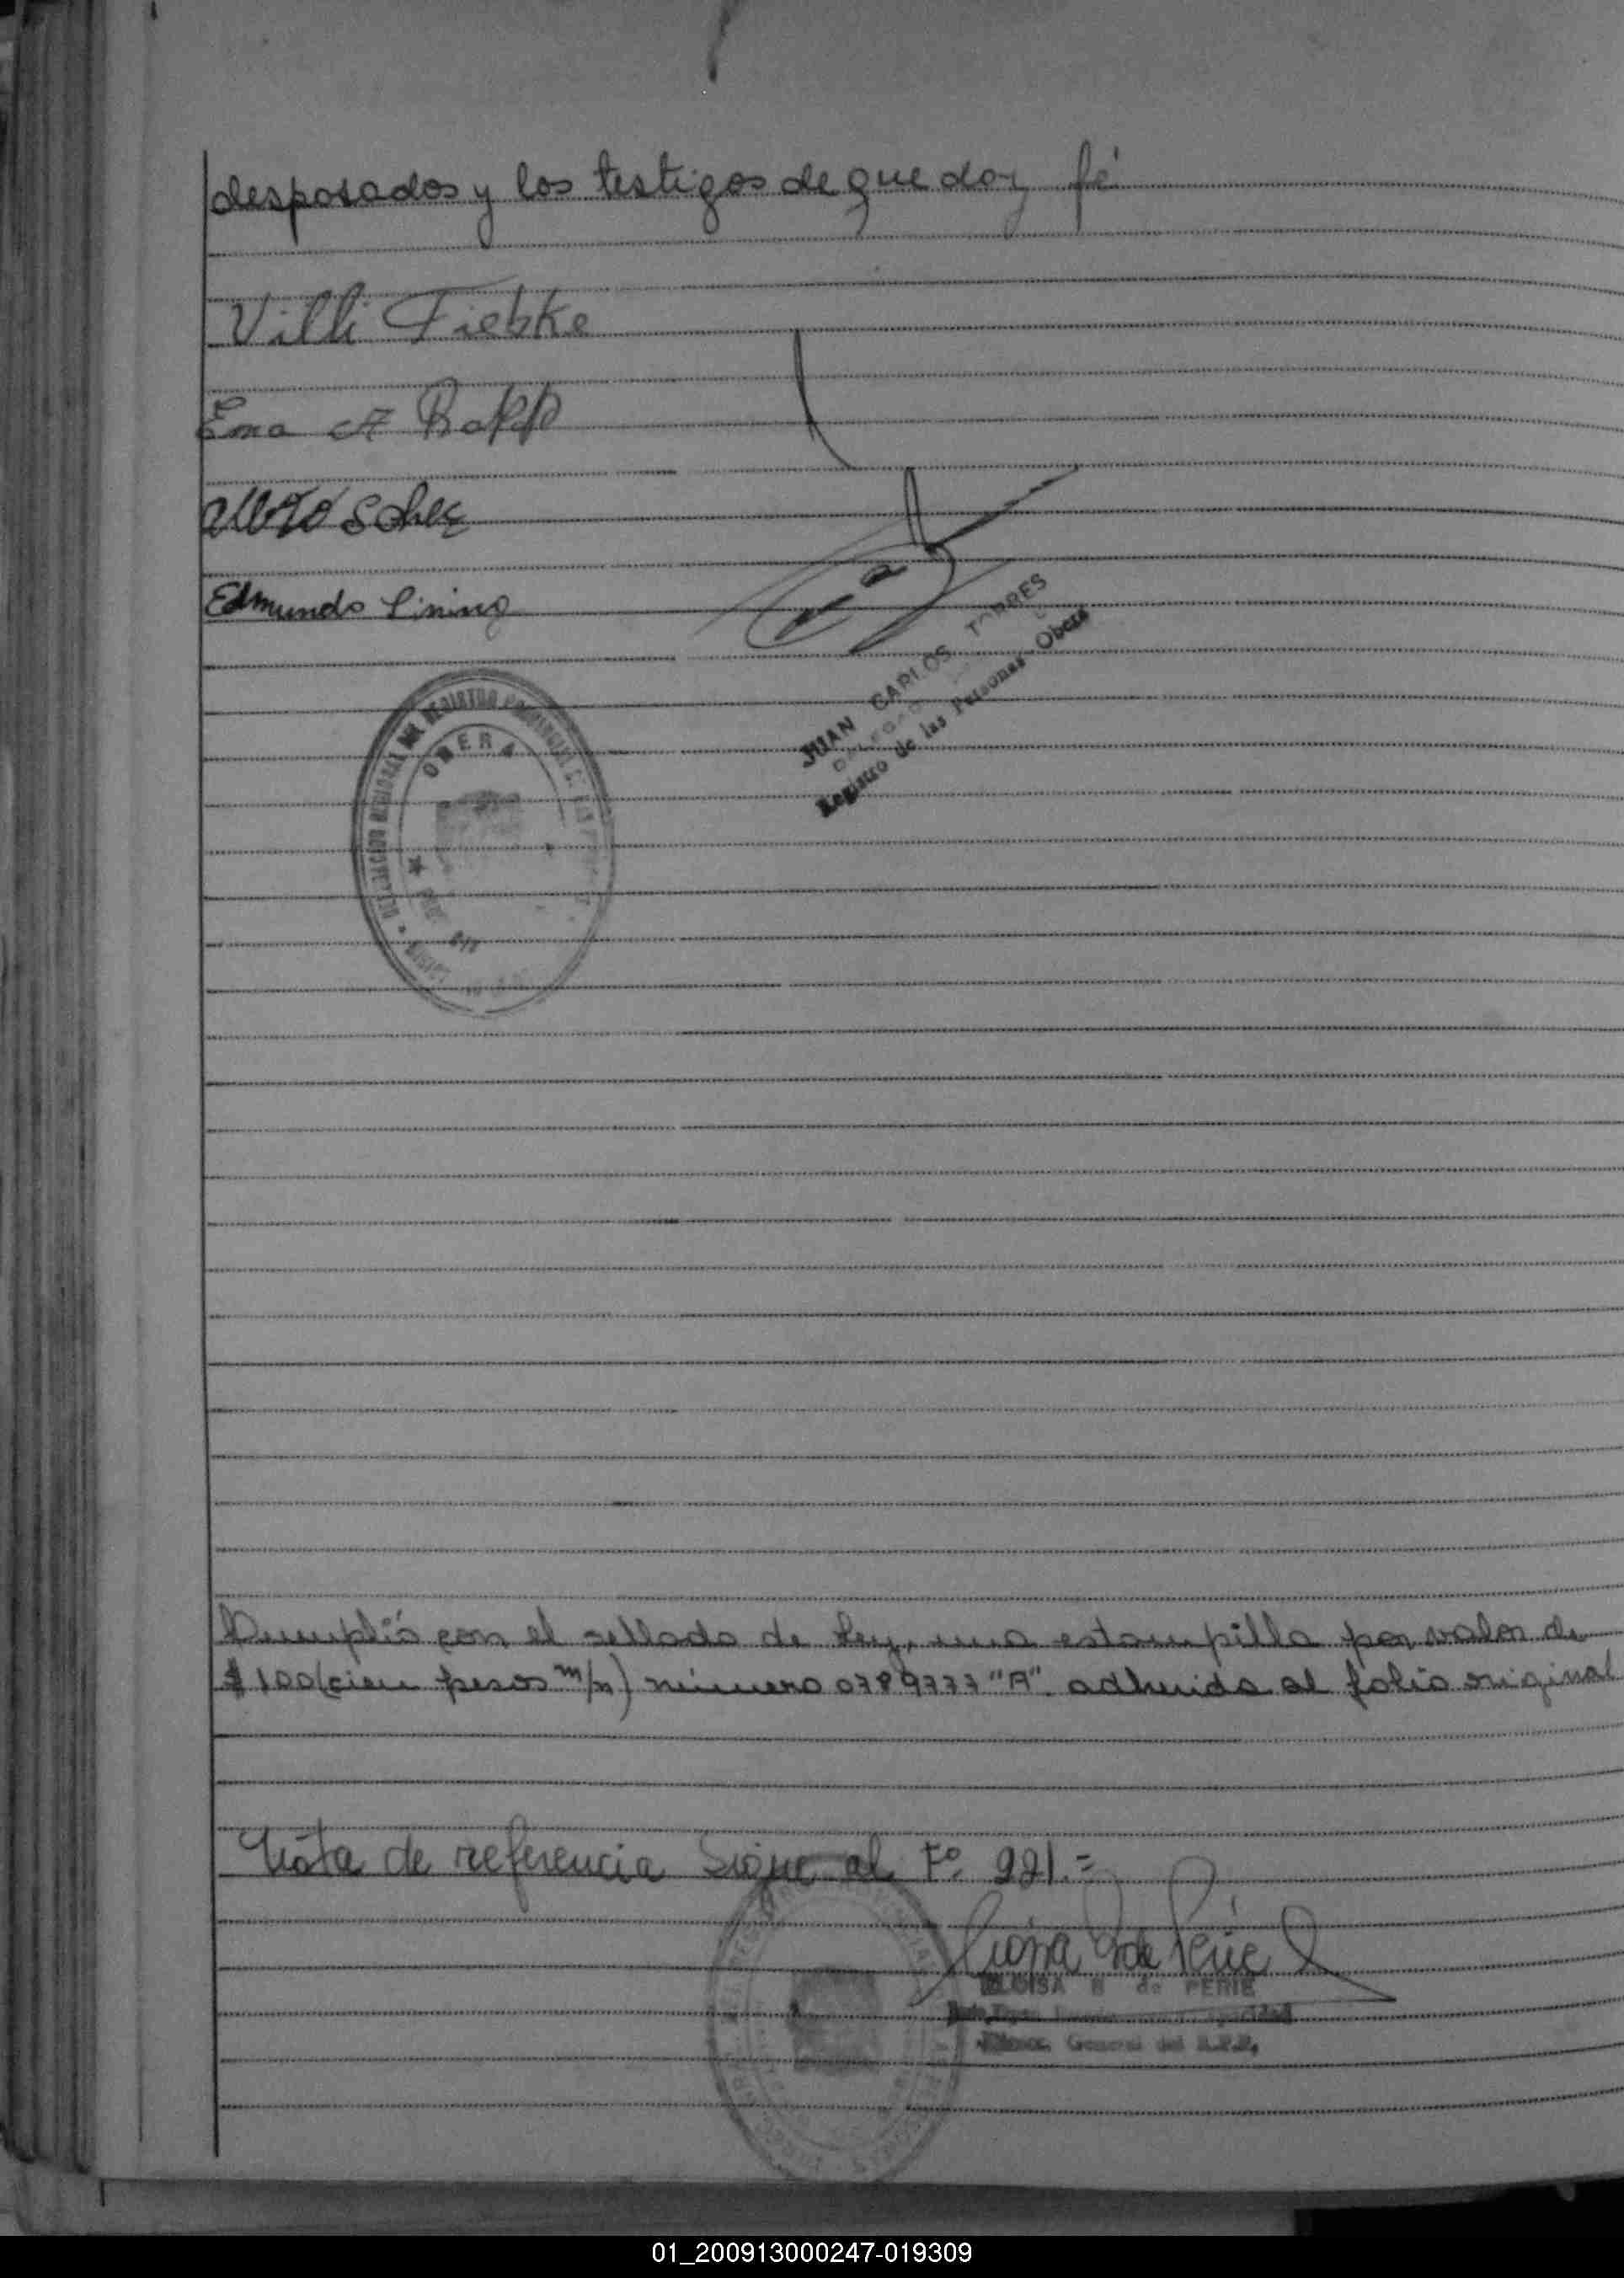 desposados y los testigos de que doy fé
Villi Fiebke
Ema A Rapp
Edmundo
JUAN CARLOS TORRES
Registro de las Personas - Oberá
OBERA
Cumplió con el sellado de Ley, una estampilla por valor de
$ 100 (cien pesos m/n) número 0789777 "A". adherida al folio original
Nota de referencia Sigue al Fº 221.=
ELOISA B de PERIE
General del R.P.P.
01_200913000247-019309